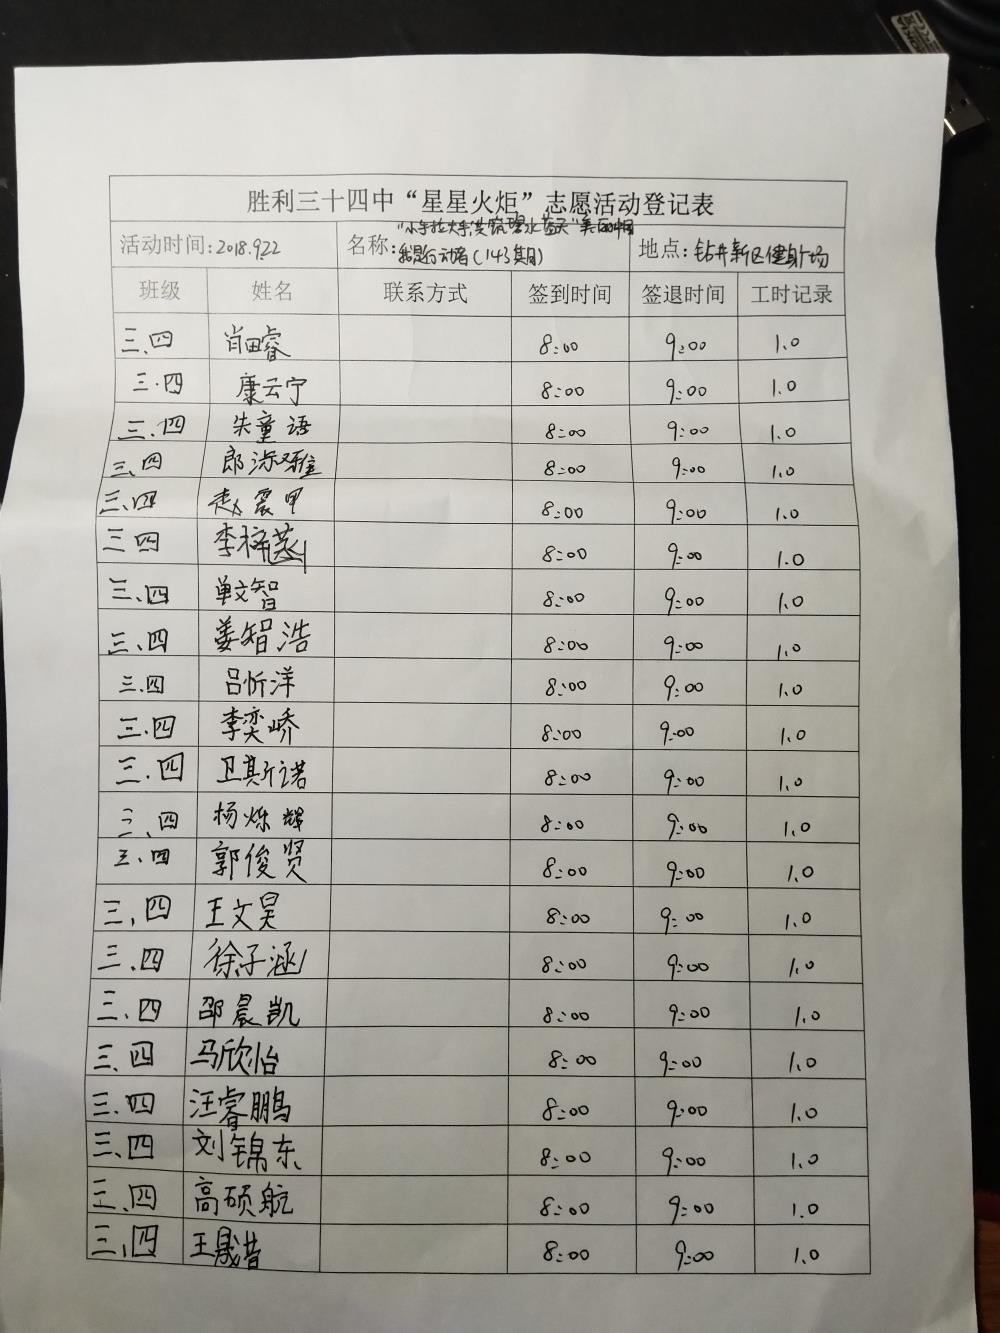 胜利三十四中“星星火炬”志愿活动登记表
活动时间:2018.9.22 名称:“小手拉大手 碧水蓝天”美丽中国 我是行动者(143期) 地点:钻井新区健身广场
班级 姓名 联系方式 签到时间 签退时间 工时记录
三.四 肖田睿 8:00 9:00 1.0
三.四 康云宁 8:00 9:00 1.0
三.四 朱童语 8:00 9:00 1.0
三.四 郎添雅 8:00 9:00 1.0
三.四 赵震甲 8:00 9:00 1.0
三四 李梓 8:00 9:00 1.0
三.四 单文智 8:00 9:00 1.0
三.四 姜智浩 8:00 9:00 1.0
三.四 吕忻洋 8:00 9:00 1.0
三.四 李奕峤 8:00 9:00 1.0
三.四 卫斯诺 8:00 9:00 1.0
三.四 杨烁辉 8:00 9:00 1.0
三.四 郭俊贤 8:00 9:00 1.0
三.四 王文昊 8:00 9:00 1.0
三.四 徐子涵 8:00 9:00 1.0
三.四 邵晨凯 8:00 9:00 1.0
三.四 马欣怡 8:00 9:00 1.0
三.四 汪睿鹏 8:00 9:00 1.0
三.四 刘锦东 8:00 9:00 1.0
三.四 高硕航 8:00 9:00 1.0
三.四 王晟昔 8:00 9:00 1.0